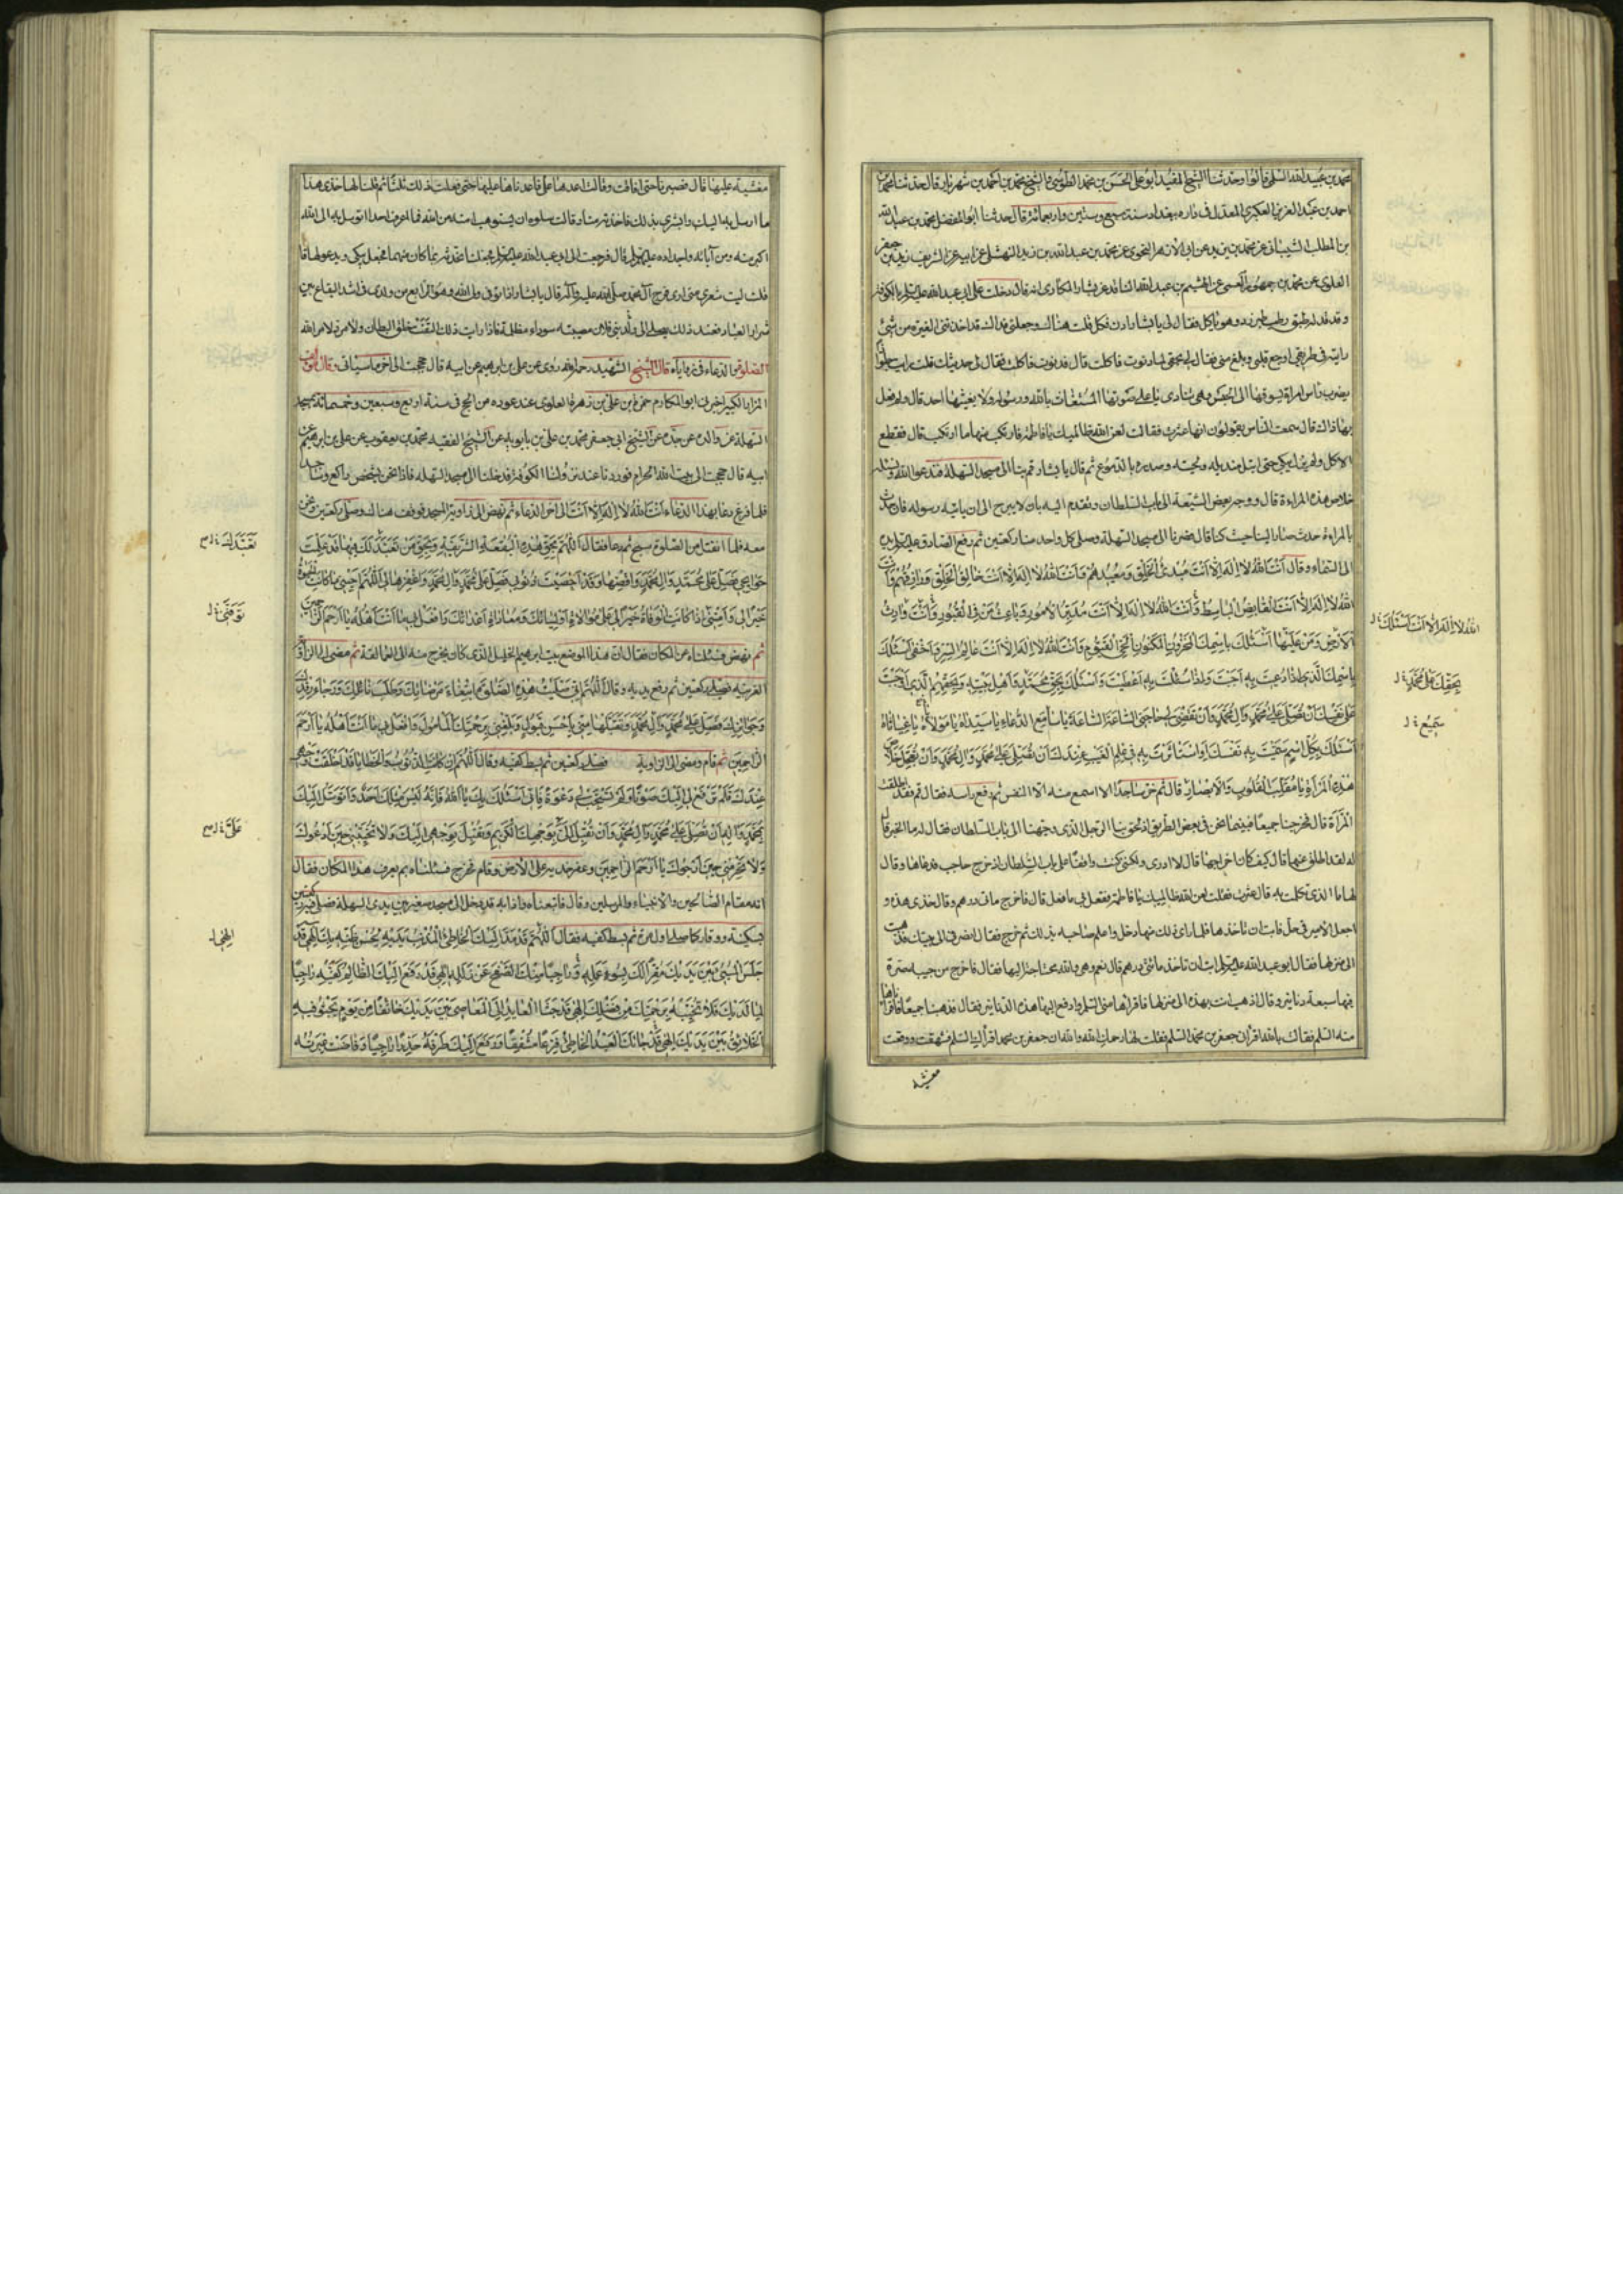 محمد بن عبيد الله السلمى قالوا وحدثنا الشيخ المفيد ابو على الحسن بن محمد الطوسى والشيخ محمد بن احمد بن شهريار قال حدثنا محمد بن
احمد بن عبد العزيز العكبرى المعدل فى داره ببغداد سنة سبع وستين واربعمائة قال حدثنا ابو المفضل محمد بن عبد الله
بن المطلب الشيبانى عن محمد بن يزيد عن ابى الازهر النحوى عن محمد بن عبد الله بن زيد النهشلى عن ابيه عن الشريف زيد بن جعفر
العلوى عن محمد بن جمهور العمى عن الهيثم بن عبد الله الناقد عن بشار المكارى انه قال دخلت على ابى عبد الله عليه السلام بالكوفة
وقد قدم له طبق رطب طبرزد وهو ياكل فقال لى يا بشار ادن فكل قلت هناك الله وجعلنى فداك قد اخذتنى الغيرة من شئ
رايته فى طريقى اوجع قلبى وبلغ منى فقال لى بحقى لما دنوت فاكلت قال فدنوت فاكلت فقال لى حديثك قلت رايت جلوازا
يضرب راس امراة يسوقها الى الحبس وهى تنادى باعلى صوتها المستغاث بالله ورسوله ولا يغيثها احد قال ولم فعل
بها ذاك قال سمعت الناس يقولون انها عثرت فقالت لعن الله ظالميك يا فاطمة فارتكب منها ما ارتكب قال فقطع
الاكل ولم يزل يبكى حتى ابتل منديله ولحيته وصدره بالدموع ثم قال يا بشار قم بنا الى مسجد السهلة فندعو الله ونسئله
خلاص هذه المراءة قال ووجه بعض الشيعة الى باب السلطان وتقدم اليه بان لا يبرح الى ان ياتيه رسوله فان حدث
بالمراءة حدث صار الينا حيث كنا قال فصرنا الى مسجد السهلة وصلى كل واحد منا ركعتين ثم رفع الصادق عليه السلام يده
الى السماء وقال انت الله لا اله الا انت مبدئ الخلق ومعيدهم وانت الله لا اله الا انت خالق الخلق ورازقهم وانت
الله لا اله الا انت القابض الباسط وانت الله لا اله الا انت مدبر الامور وباعث من فى القبور وانت وارث
الارض ومن عليها اسئلك باسمك المخزون المكنون الحى القيوم وانت الله لا اله الا انت عالم السر واخفى اسئلك
باسمك الذى اذا دعيت به اجبت واذا سئلت به اعطيت واسئلك بحق محمد واهل بيته وبحقهم الذى اوجبته
على نفسك ان تصلى على محمد وال محمد وان تقضى لى حاجتى الساعة الساعة يا سامع الدعاء يا سيداه يا مولاه يا غياثاه
اسئلك بكل اسم سميت به نفسك او استاثرت به فى علم الغيب عندك ان تصلى على محمد وال محمد وان تعجل خلاص
هذه المراة يا مقلب القلوب والابصار قال ثم خر ساجدا لا اسمع منه الا النفس ثم رفع راسه فقال قم فقد اطلقت
المراة قال فخرجنا جميعا فبينما نحن فى بعض الطريق اذ لحق بنا الرجل الذى وجهنا الى باب السلطان فقال له ما الخبر قال
له لقد اطلق عنها قال كيف كان اخراجها قال لا ادرى ولكننى كنت واقفا على باب السلطان اذ خرج حاجب فدعاها وقال
لها ما الذى تكلمت به قال عثرت فقلت لعن الله ظالميك يا فاطمة ففعل بى ما فعل قال فاخرج مائتى درهم وقال خذى هذه و
اجعلى الامير فى حل فابت ان تاخذها فلما راى ذلك منها دخل واعلم صاحبه بذلك ثم خرج فقال انصرفى الى بيتك فذهبت
الى منزلها فقال ابو عبد الله عليه السلام ابت ان تاخذ مائتى درهم قال نعم وهى والله محتاجة اليها فقال فاخرج من جيبه صرة
فيها سبعة دنانير وقال اذهب انت بهذه الى منزلها فاقراها منى السلم وادفع اليها هذه الدنانير فقال فذهبنا جميعا فاقراناها
منه السلم فقالت بالله اقرانى جعفر بن محمد السلم فقلت لها رحمك الله والله ان جعفر بن محمد اقراك السلم فشهقت ووقعت
مغشية
الله لا اله الا انت اسئلك
بحقك على محمد
سميع
مغشية عليها قال فصبرنا حتى افاقت وقالت اعدها على فاعدناها عليها حتى فعلت ذلك ثلثا ثم قلنا لها خذى هذا
ما ارسل به اليك وابشرى بذلك فاخذته منا وقالت سلوه ان يستوهب امته من الله فما اعرف احدا اتوسل به الى الله
اكبر منه ومن آبائه واجداده عليهم السلام قال فرجعت الى ابى عبد الله عليه السلام فجعلنا نحدثه بما كان منها فجعل يبكى ويدعو لها ثم
قلت ليت شعرى متى ارى فرج آل محمد صلى الله عليه وآله قال يا بشار اذا توفى ولى الله وهو الرابع من ولدى فى اشد البقاع بين
شرار العباد فعند ذلك يصل الى ولد بنى فلان مصيبة سوداء مظلمة فاذا رايت ذلك التقت حلق البطان ولا مرد لامر الله
الصلوة والدعاء فى زواياه قال الشيخ الشهيد رحمه الله روى عن على بن ابراهيم عن ابيه قال حججت الى اخر ما سياتى وقال مؤلف
المزار الكبير اخبرنى ابو المكارم حمزة بن على بن زهرة العلوى عند عوده من الحج فى سنة اربع وسبعين وخمسمائة بمسجد
السهلة عن والده عن جده عن الشيخ ابى جعفر محمد بن على بن بابويه عن الشيخ الفقيه محمد بن يعقوب عن على بن ابراهيم عن
ابيه قال حججت الى بيت الله الحرام فوردنا عند نزولنا الكوفة فدخلنا الى مسجد السهلة فاذا نحن بشخص راكع وساجد
فلما فرغ دعا بهذا الدعاء انت الله لا اله الا انت الى اخر الدعاء ثم نهض الى زاوية المسجد فوقف هناك وصلى ركعتين ونحن
معه فلما انفتل من الصلوة سبح ثم دعا فقال اللهم بحق هذه البقعة الشريفة وبحق من تعبد لك فيها قد علمت
حوائجى فصل على محمد وال محمد واقضها وقد احصيت ذنوبى فصل على محمد وال محمد واغفرها لى اللهم احينى ما كانت الحيوة
خيرا لى وامتنى اذا كانت الوفاة خيرا لى على موالاة اوليائك ومعاداة اعدائك وافعل بى ما انت اهله يا ارحم الراحمين
ثم نهض فسئلناه عن المكان فقال ان هذا الموضع بيت ابراهيم الخليل الذى كان يخرج منه الى العمالقة ثم مضى الى الزاوية
الغربية فصلى ركعتين ثم رفع يديه وقال اللهم انى صليت هذه الصلوة ابتغاء مرضاتك وطلب نائلك ورجاء رفدك
وجوائزك فصل على محمد وآل محمد وتقبلها منى باحسن قبول وبلغنى برحمتك المامول وافعل بى ما انت اهله يا ارحم
الراحمين ثم قام ومضى الى الزاوية فصلى ركعتين ثم بسط كفيه وقال اللهم ان كانت الذنوب والخطايا قد اخلقت وجهى
عندك فلم ترفع لى اليك صوتا ولم تستجب لى دعوة فانى اسئلك بك يا الله فانه ليس مثلك احد واتوسل اليك
بمحمد واله ان تصلى على محمد وال محمد وان تقبل الى بوجهك الكريم وتقبل بوجهى اليك ولا تخيبنى حين ادعوك
ولا تحرمنى حين ارجوك يا ارحم الراحمين وعفر خديه على الارض وقام فخرج فسئلناه بم يعرف هذا المكان فقال
انه مقام الصالحين والانبياء والمرسلين وقال فاتبعناه فاذا به قد دخل الى مسجد صغير بين يدى السهلة فصلى فيه ركعتين
بسكينة ووقار كما صلى اول مرة ثم بسط كفيه فقال اللهم قد مد اليك الخاطئ المذنب يديه بحسن ظنه بك الهى قد
جلس المسئ بين يديك مقرا لك بسوء عمله وراجيا منك الصفح عن زلله الهى قد رفع اليك الظالم كفيه راجيا
لما لديك فلا تخيبه برحمتك من فضلك الهى قد جثا العايد الى المعاصى بين يديك خائفا من يوم يجثو فيه
الخلائق بين يديك الهى قد جائك العبد الخاطئ فزعا مشفقا ورفع اليك طرفه حذرا راجيا وفاضت عبرته
تعبد لك
توفنى
على
الهى